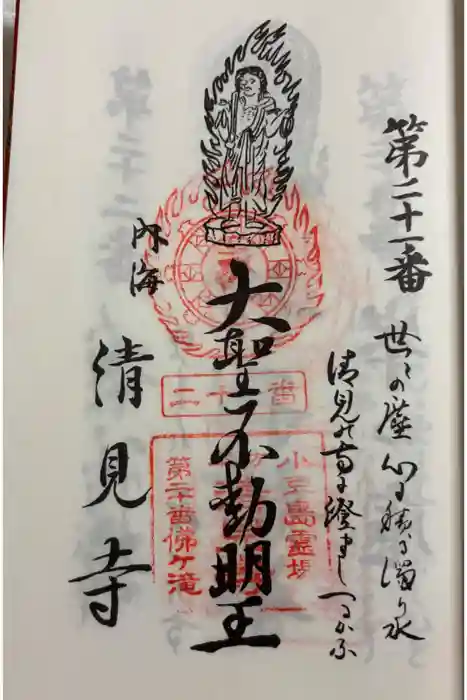 第二十一番
世々の塵心に積る濁り水
清見の寺に澄ましつるかな
大聖不動明王
内海
清見寺
番十二
小豆島霊場
第二十番佛ヶ滝